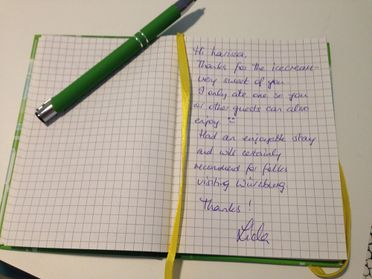 Hi Larissa,
Thanks for the icecream-
very sweet of you
I only ate one so you
or other guests can also
enjoy
Had an enjoyable stay
and will certainly
recommend for folks
visiting Würzburg
Thanks!